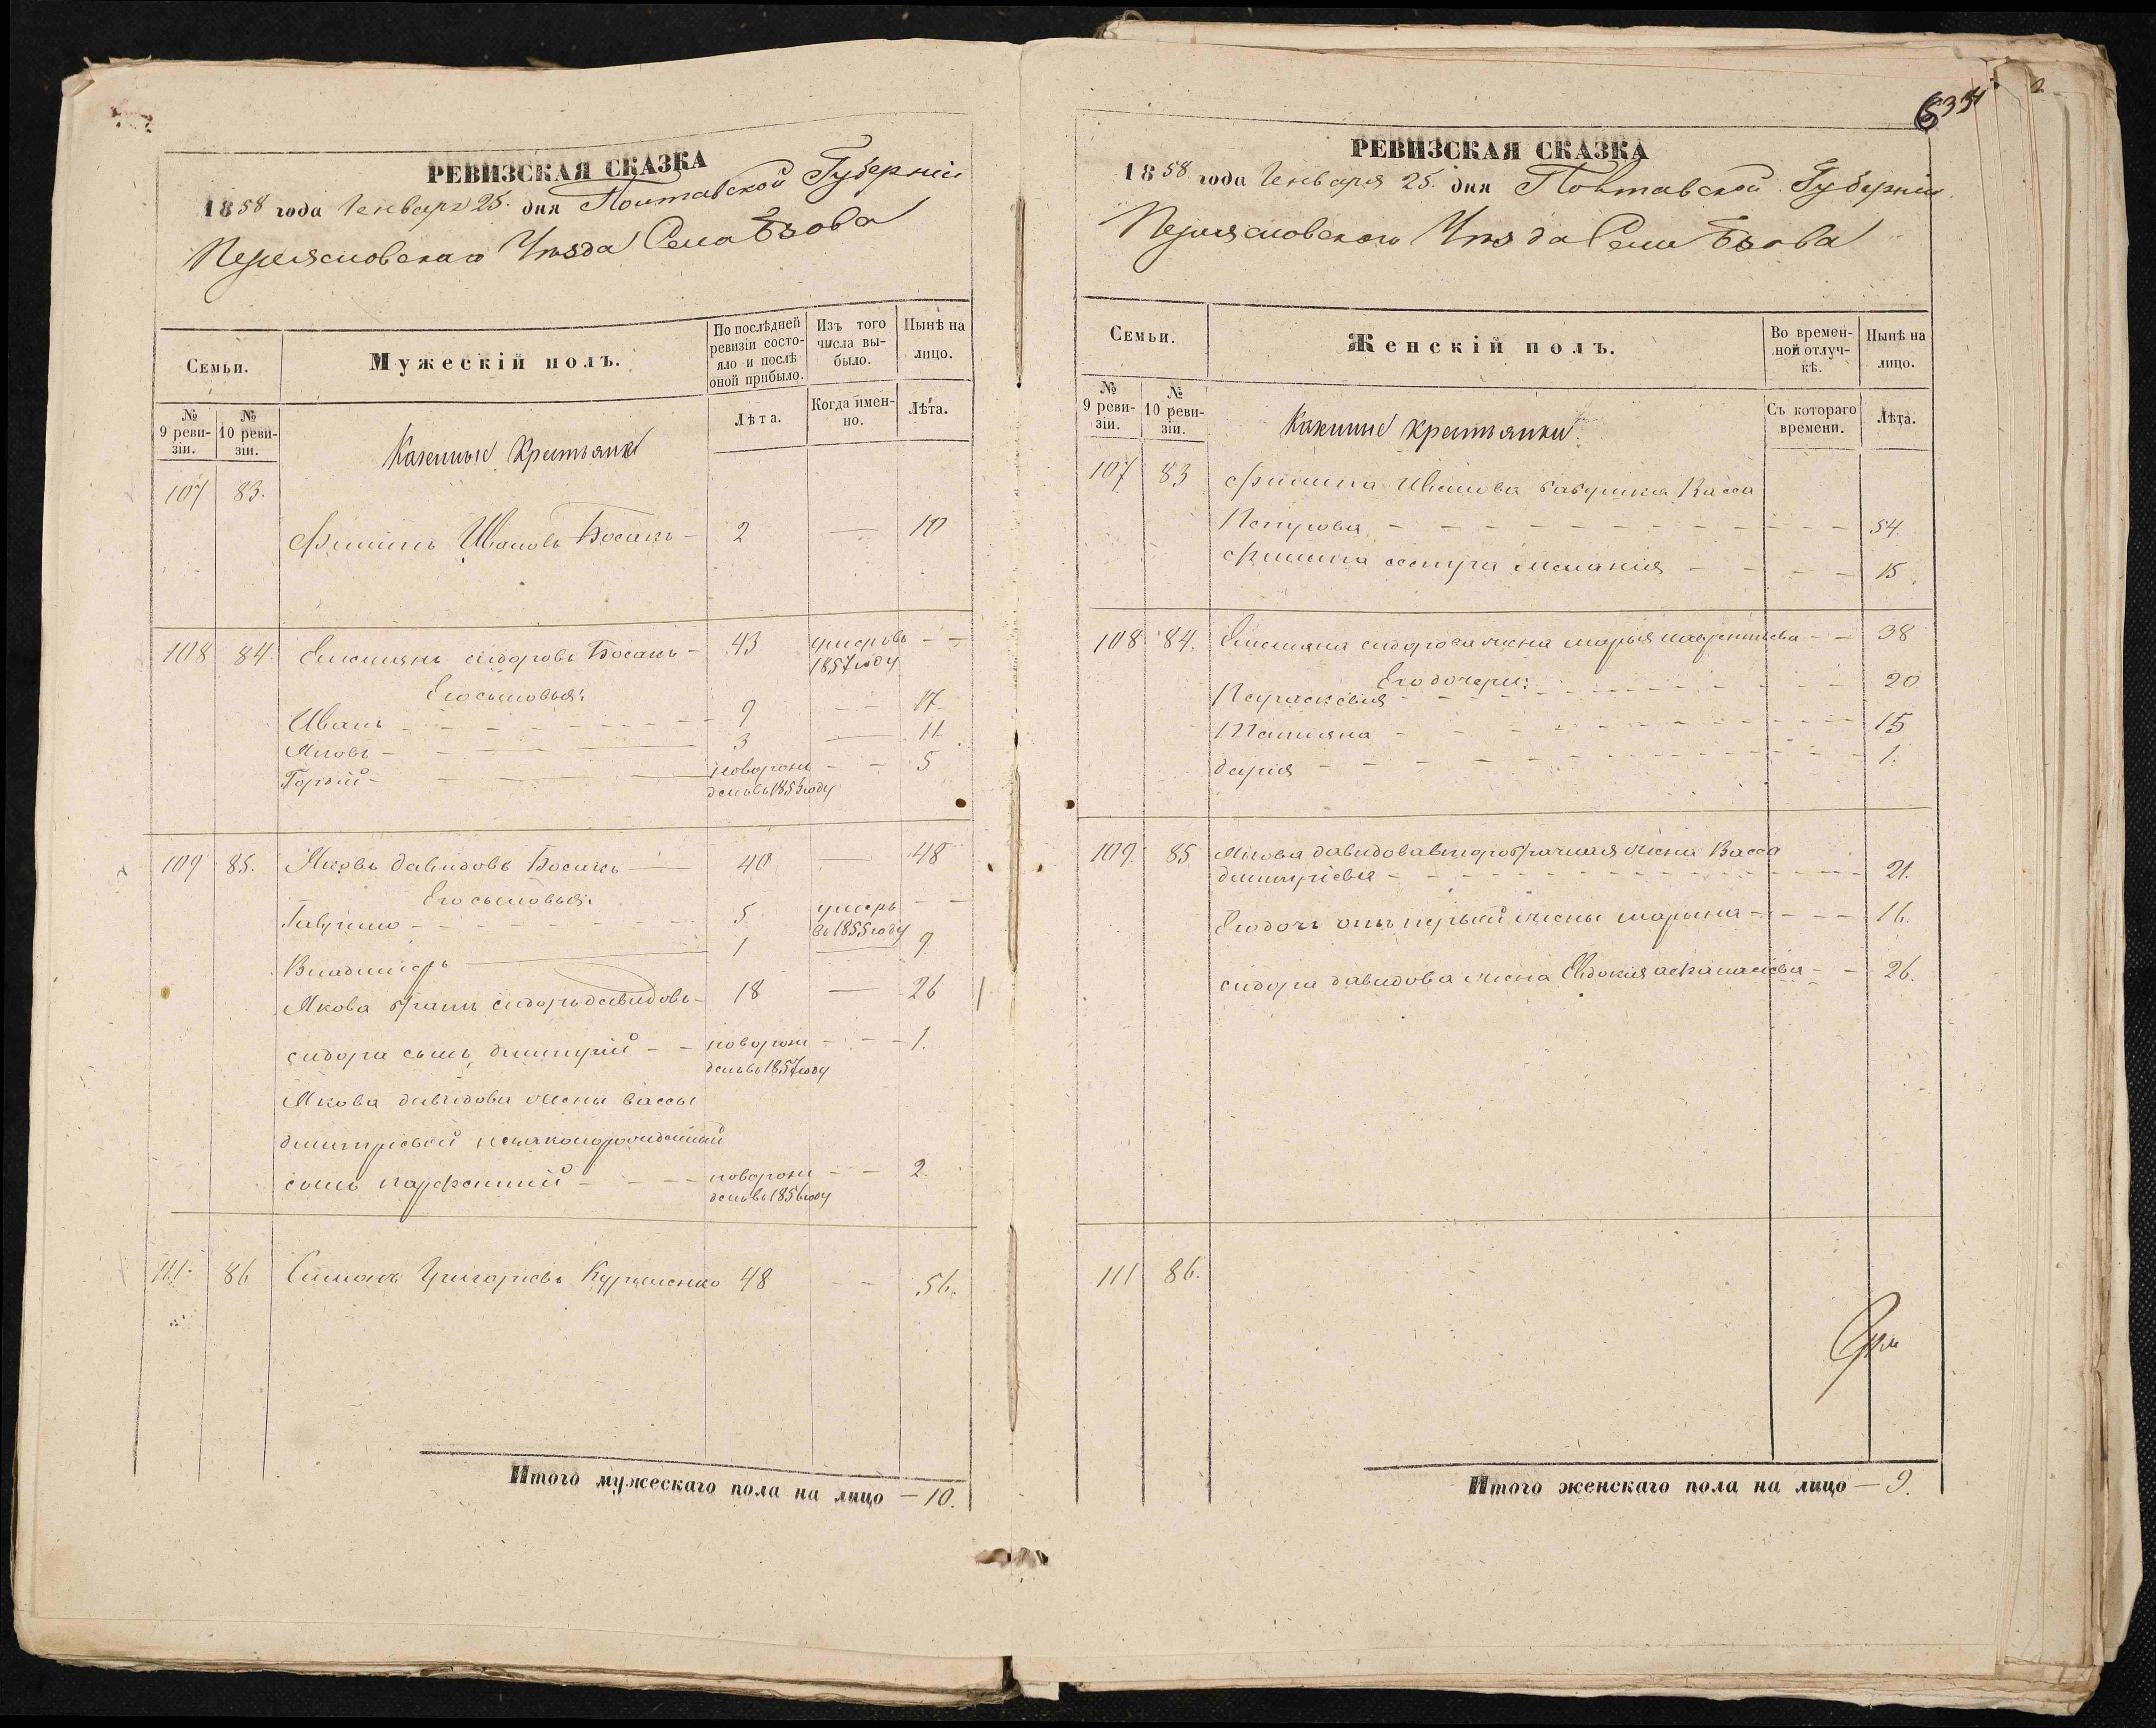 РЕВИЗСКАЯ СКАЗКА
1858 года Генваря 25. дня Полтавской Губерніи
Переясловскаго Уѣзда Села
Семьи.
Мужескій полъ.
По послѣдней ревизіи состояло и послѣ оной прибыло.
Изъ того числа выбыло.
Нынѣ на лицо.
№ 9 ревизіи.
№ 10 ревизіи.
Казенные Крестьяне
Лѣта.
Когда именно.
Лѣта.
107 83.
Филипъ Ивановъ Босакъ - 2 — 10
108 84. Емельянъ сидоровъ Босакъ - 43 умеръ въ - -
1857 году
Его сыновья:
Иванъ - - - 9 - - 17.
Яковъ - - - 3 — 11.
Гордій - - - новорож - - 5
денъ въ 1853 году
109 85. Яковъ давидовъ Босакъ — 40 — 48
Его сыновья:
Гаврило - - - 5 умеръ - -
въ 1855 году
Владимеръ — 1 — 9.
Якова братъ сидоръ давидовъ - 18 — 26
сидора сынъ дмитрій - - новорож - - 1.
денъ въ 1857 году
Якова давидова жены вассы
дмитріевой незаконорожденный
сынъ парфентій - - - новорож - - 2.
денъ въ 1856 году
111. 86 Симонъ Григорьевъ 48 - - 56.
Итого мужескаго пола на лицо — 10.
РЕВИЗСКАЯ СКАЗКА
1858 года Генваря 25. дня Полтавской Губерніи
Переясловскаго Уѣзда Села
Семьи.
Женскій полъ.
Во временной отлучкѣ.
Нынѣ на лицо.
№ 9 ревизіи.
№ 10 ревизіи.
Казенные крестьянки.
Съ котораго времени.
Лѣта.
107 83 Филипа Иванова бабушка Васса
Петрова - - - 54.
Филипа сестра меланія - - - 15.
108 84. Емельяна сидорова жена марья лаврентіева - - 38
Его дочери:
Парасковія - - - 20
Татіяна - - - 15
дарія - - - 1.
109. 85 Якова давидова второбрачная жена Васса
дмитріева - - - 21.
Его дочь отъ первой жены марина - - - 16.
сидора давидова жена Евдокія афанасіева - - 26.
111 86.
Итого женскаго пола на лицо — 9.